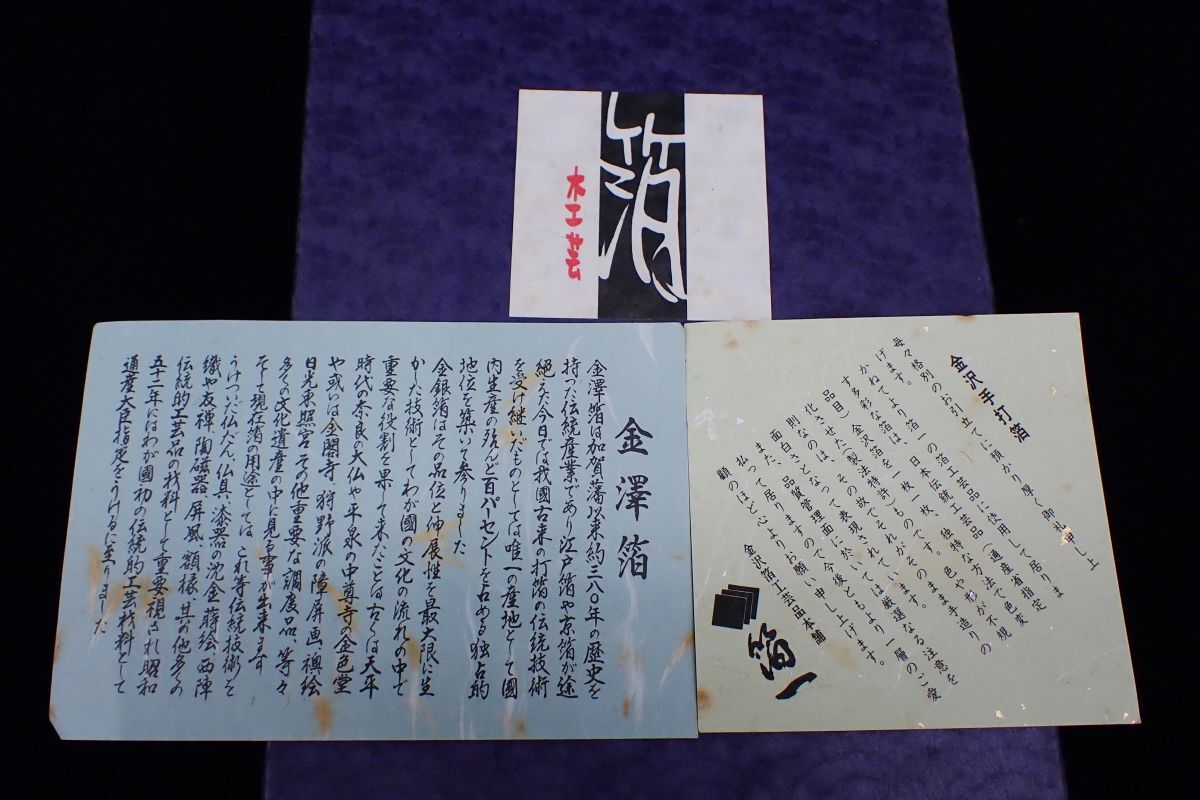 箔
木工芸
金沢手打箔
毎々格別のお引立てに預かり厚く御礼申し上
げます。
かねてより箔一の箔工芸品に使用して居りま
す多彩な箔は、日本伝統工芸品（通産省指定
品目）金沢箔を一枚一枚、独特な方法で色変
化させた（製法特許）ものです。色や形が不規
則なのは、その故でそれがそのまま手造りの
面白さとなって表現されています。
また、品質管理面に於いては厳選なる注意を
払って居りますので今後ともより一層のご愛
顧のほど心よりお願い申し上げます。
金沢箔工芸品本舗
箔一
金澤箔
金澤箔は加賀藩以来約三八〇年の歴史を
持つた伝統産業であり江戸箔や京箔が途
絶えた今日では我國古来の打箔の伝統技術
を受け継いだものとしては唯一の産地として國
内生産の殆んど百パーセントを占める独占的
地位を築いて参りました
金銀箔はその品位と伸展性を最大限に生
かした技術としてわが國の文化の流れの中で
重要な役割を果して来たことは古くは天平
時代の奈良の大仏や平泉の中尊寺の金色堂
や或いは金閣寺、狩野派の障屏画、襖絵
日光東照宮その他重要な調度品、等々
多くの文化遺産の中に見る事が出来ます
そして現在箔の用途としては、これ等伝統技術を
うけついだ仏だん、仏具、漆器の沈金蒔絵、西陣
織や友禅、陶磁器、屏風、額椽、其の他多くの
伝統的工芸品の材料として重要視され昭和
五十二年にはわが國初の伝統的工芸材料として
通産大臣指定をうけるに至りました